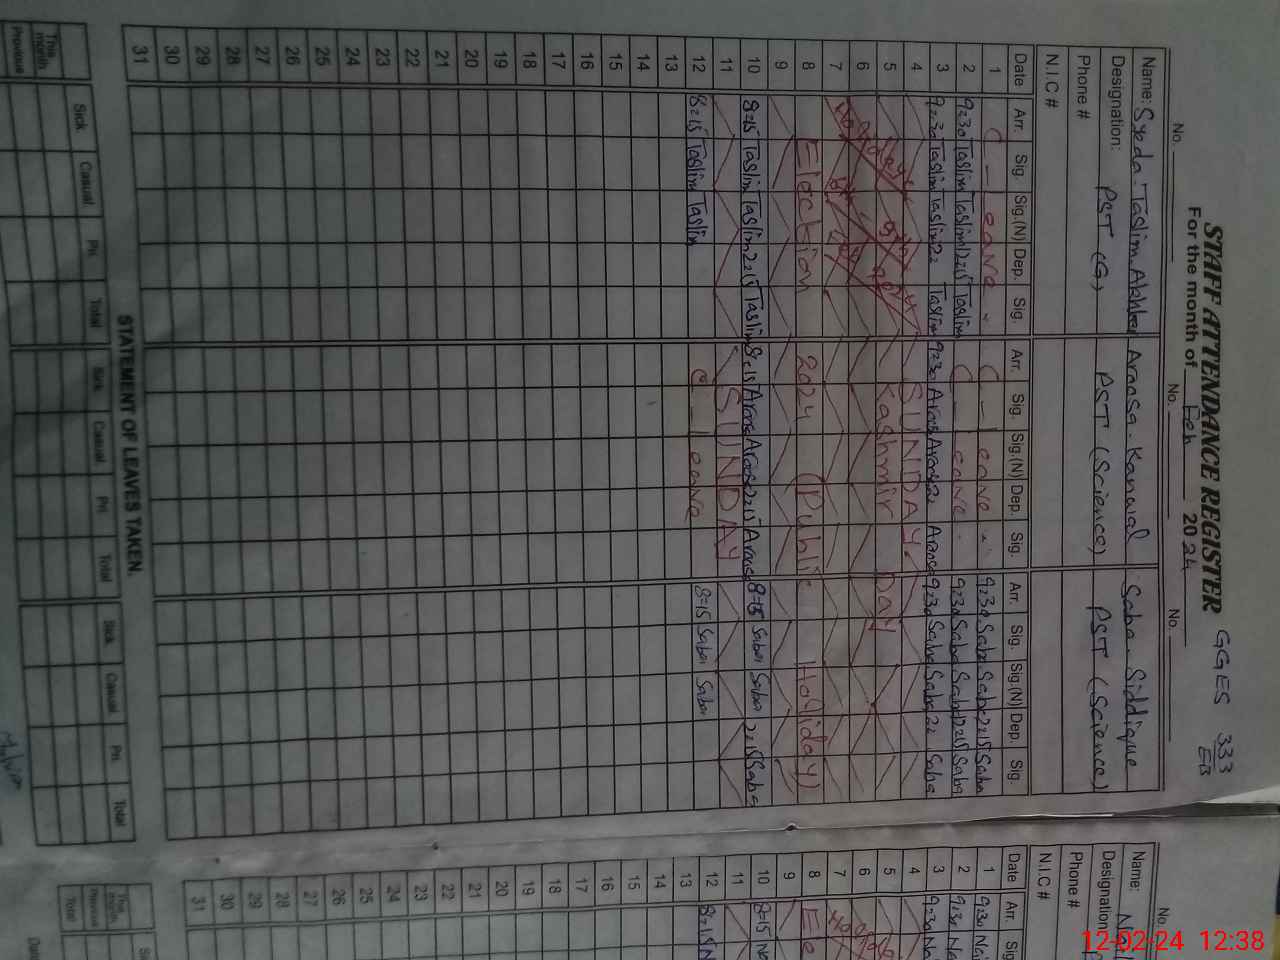 STAFF ATTENDANCE REGISTER GGES 333/EB
For the month of Feb 2024
No. No. No.
Name: Syeda Taslim Akhter Aroosa Kanwal Saba Siddique
Designation: PST (G) PST (Science) PST (Science)
Phone #
N.I.C #
Date Arr. Sig. Sig.(N) Dep. Sig. Arr. Sig. Sig.(N) Dep. Sig. Arr. Sig. Sig.(N) Dep. Sig.
1 C - Leave C - Leave 9:30 Saba Saba 2:15 Saba
2 9:30 Taslim Taslim 12:15 Taslim C - Leave 9:30 Saba Saba 12:15 Saba
3 9:30 Taslim Taslim 2: Taslim 9:30 Aroosa Aroosa 2: Aroosa 9:30 Saba Saba 2: Saba
4 SUNDAY
5 Kashmir Day
6
7
8 Election 2024 (Public Holiday)
9
10 8:15 Taslim Taslim 2:15 Taslim 8:15 Aroosa Aroosa 2:15 Aroosa 8:15 Saba Saba 2:15 Saba
11 SUNDAY
12 8:15 Taslim Taslim C - Leave 8:15 Saba Saba
13
14
15
16
17
18
19
20
21
22
23
24
25
26
27
28
29
30
31
STATEMENT OF LEAVES TAKEN.
Sick Casual Pri. Total Sick Casual Pri. Total Sick Casual Pri. Total
This month
Previous
No.
Name:
Designation:
Phone #
N.I.C #
Date Arr. Sig
1 9:30
2 9:30
3 9:30
4
5
6
7
8 Ele
9
10 8:15
11
12 8:15
13
14
15
16
17
18
19
20
21
22
23
24
25
26
27
28
29
30
31
This month
Previous
Total
12-02-24 12:38